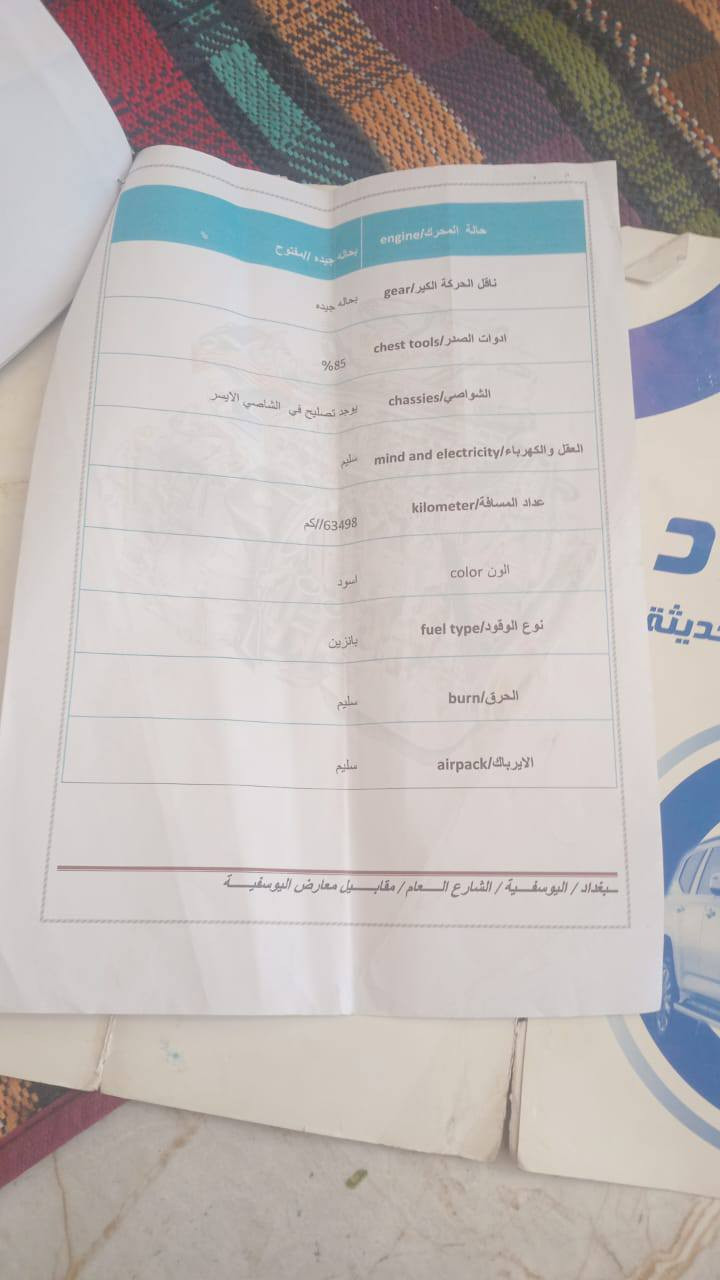 حالة المحرك/engine بحاله جيده //مفتوح %
ناقل الحركة الكير/gear بحاله جيده
ادوات الصدر/chest tools %85
الشواصي/chassies يوجد تصليح في الشاصي الايسر
العقل والكهرباء/mind and electricity سليم
عداد المسافة/kilometer 63498//كم
الون color اسود
نوع الوقود/fuel type بانزين
الحرق/burn سليم
الايرباك/airpack سليم
بغداد / اليوسفية / الشارع العام / مقابيل معارض اليوسفية